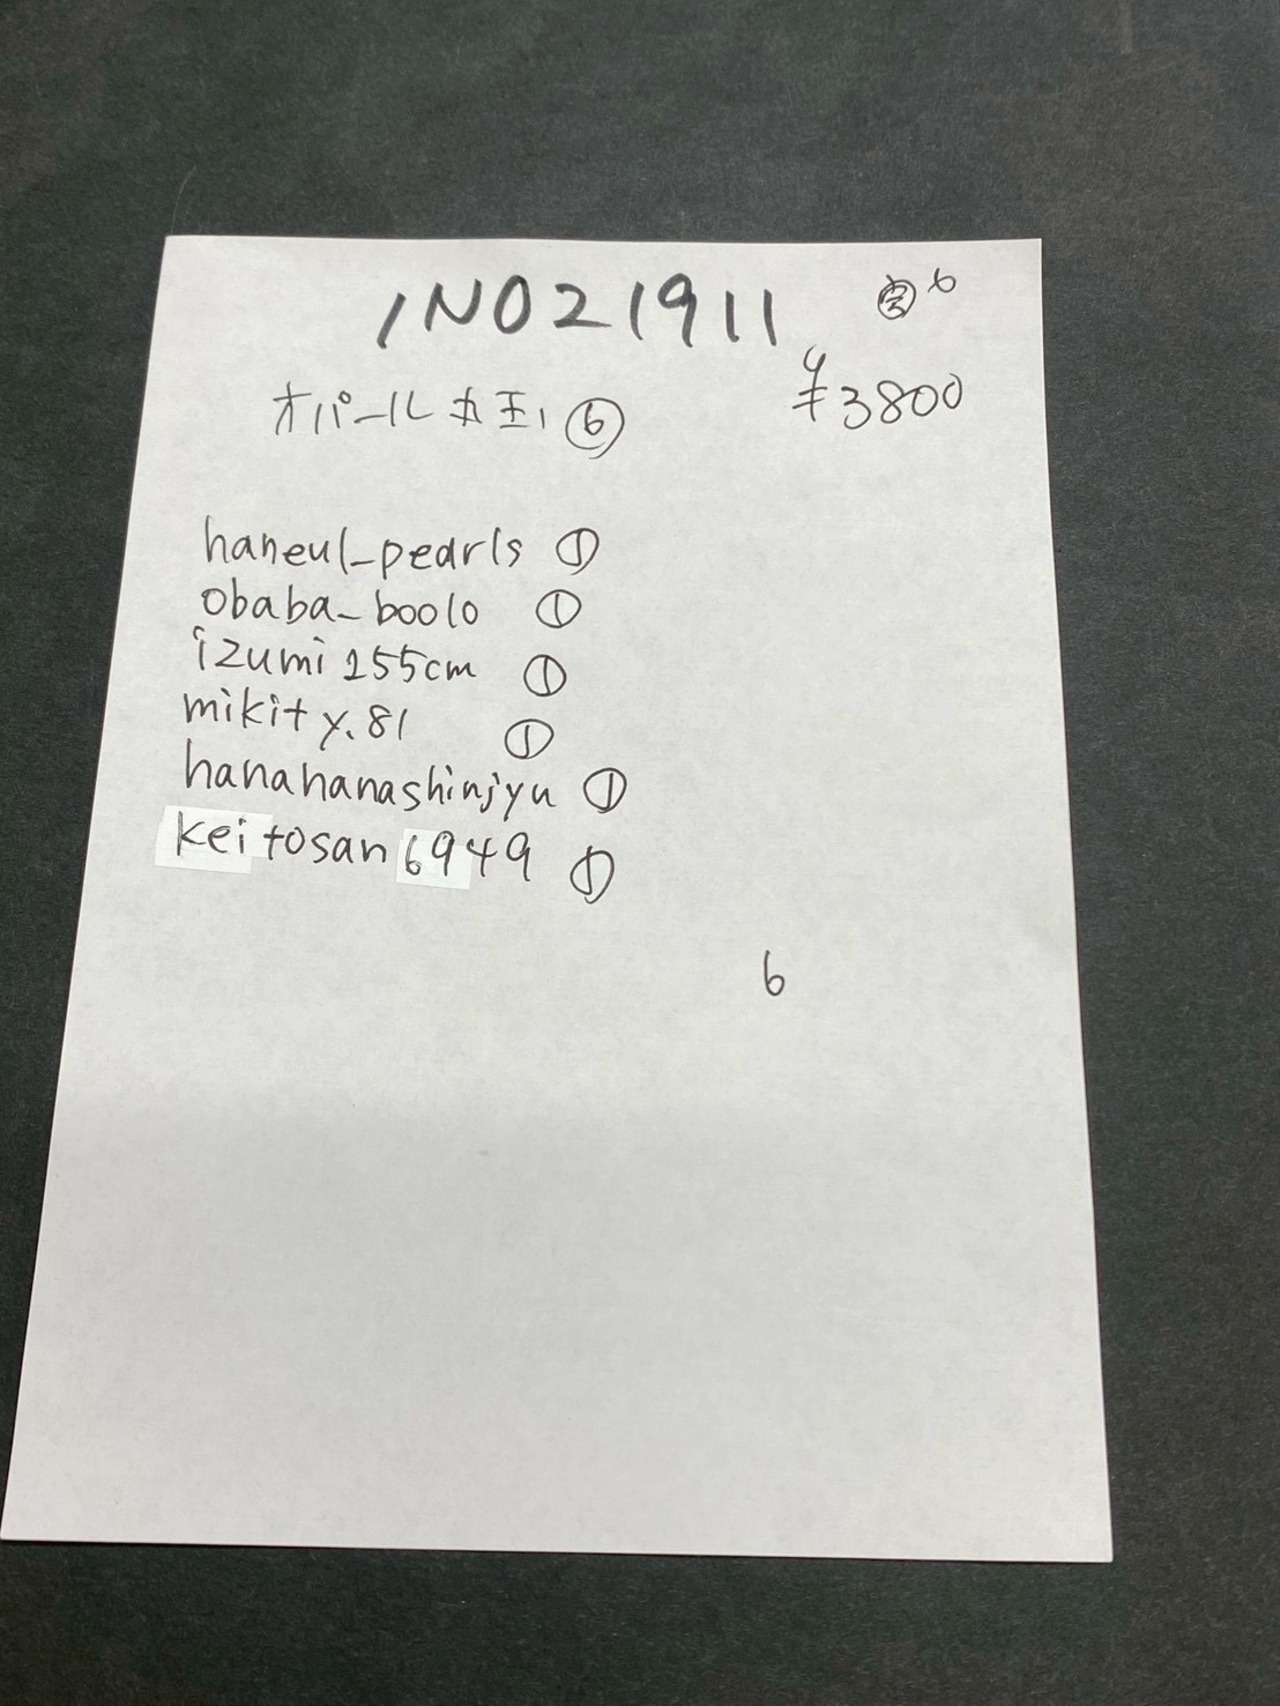 1N021911
㊫ 6
オパール 丸玉1 ⑥
¥3800
haneul_pearls ①
obaba_boolo ①
izumi255cm ①
mikity.81 ①
hanahanashinjyu ①
keitosan6949 ①
6